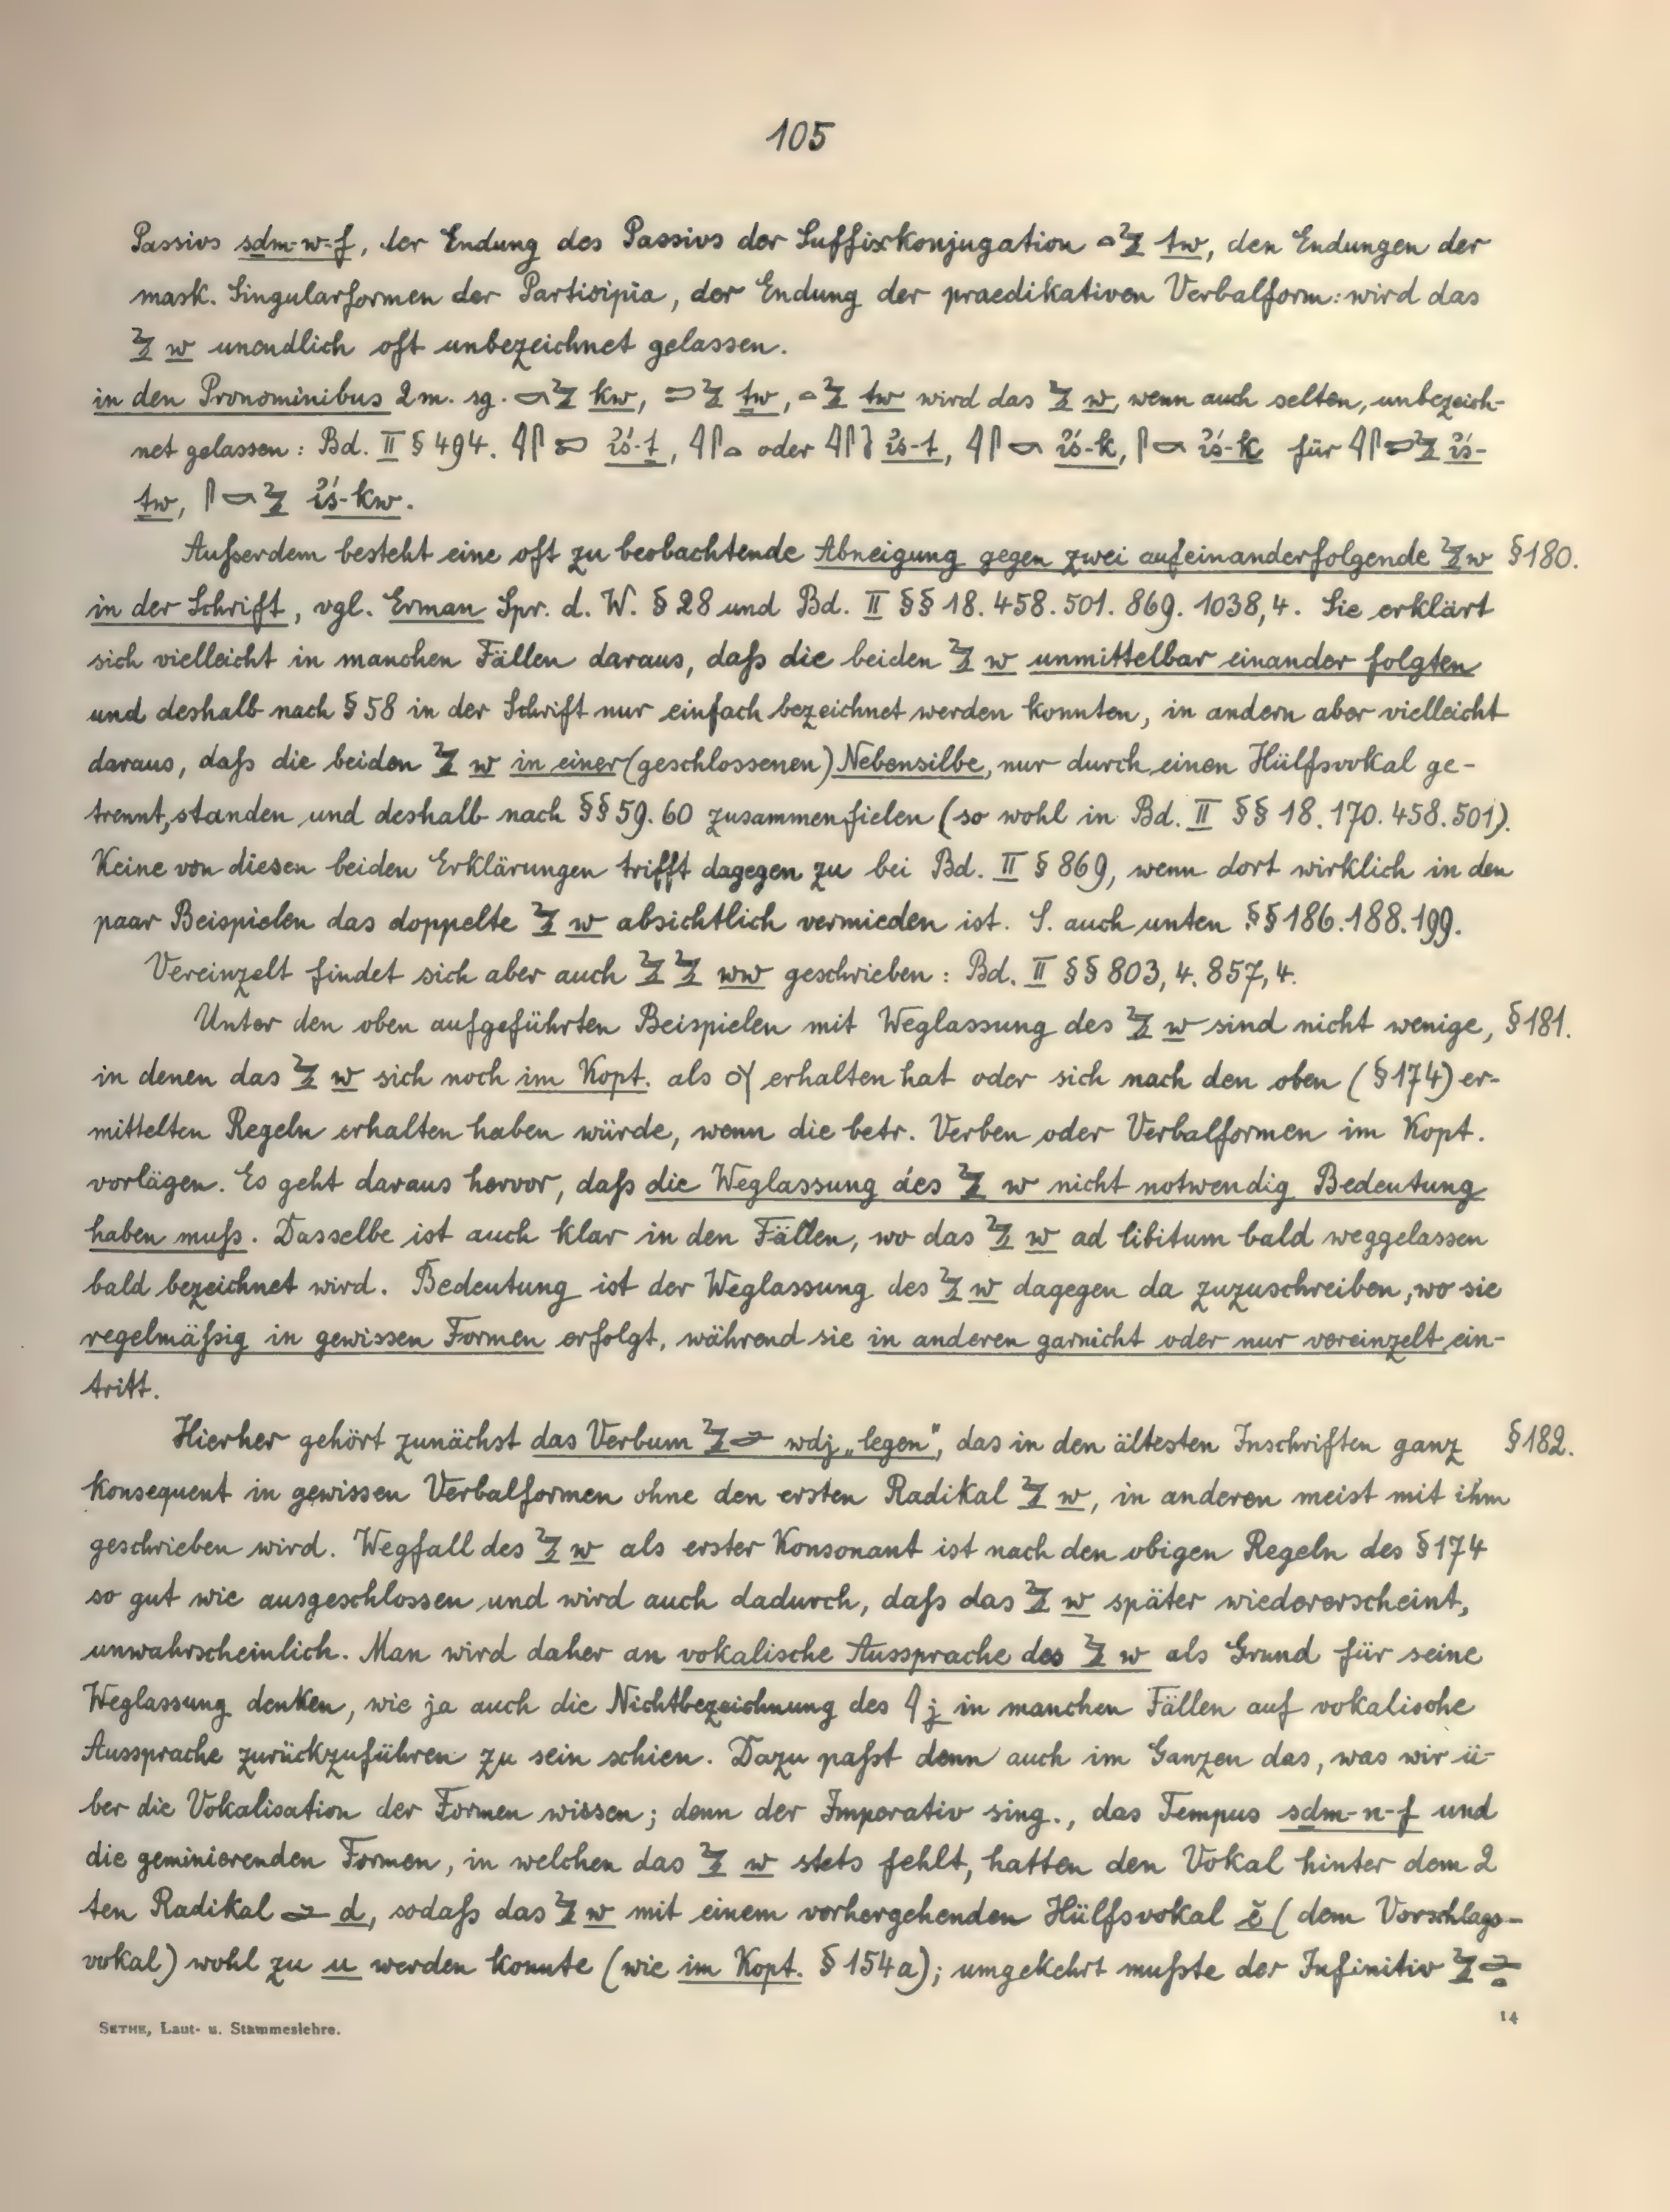 105
Passivs sḏm-w-f, der Endung des Passivs der Suffixkonjugation 𓏏𓅱 tw, den Endungen der
mask. Singularformen der Partizipia, der Endung der praedikativen Verbalform: wird das
𓅱 w unendlich oft unbezeichnet gelassen.
in den Pronominibus 2 m. sg. 𓎡𓅱 kw, 𓍿𓅱 ṯw, 𓏏𓅱 tw wird das 𓅱 w, wenn auch selten, unbezeich-
net gelassen: Bd. II § 494. 𓇋𓋴𓍿 ꞽś-ṯ, 𓇋𓋴𓏏 oder 𓇋𓋴 ꞽś-t, 𓇋𓋴𓎡 ꞽś-k, 𓋴𓎡 ꞽś-k für 𓇋𓋴𓍿𓅱 ꞽś-
ṯw, 𓋴𓎡𓅱 ꞽś-kw.
Außerdem besteht eine oft zu beobachtende Abneigung gegen zwei aufeinanderfolgende 𓅱 w § 180.
in der Schrift, vgl. Erman Spr. d. W. § 28 und Bd. II §§ 18. 458. 501. 869. 1038,4. Sie erklärt
sich vielleicht in manchen Fällen daraus, daß die beiden 𓅱 w unmittelbar einander folgten
und deshalb nach § 58 in der Schrift nur einfach bezeichnet werden konnten, in andern aber vielleicht
daraus, daß die beiden 𓅱 w in einer (geschlossenen) Nebensilbe, nur durch einen Hülfsvokal ge-
trennt, standen und deshalb nach §§ 59. 60 zusammenfielen (so wohl in Bd. II §§ 18. 170. 458. 501).
Keine von diesen beiden Erklärungen trifft dagegen zu bei Bd. II § 869, wenn dort wirklich in den
paar Beispielen das doppelte 𓅱 w absichtlich vermieden ist. S. auch unten §§ 186. 188. 199.
Vereinzelt findet sich aber auch 𓅱𓅱 ww geschrieben: Bd. II §§ 803,4. 857,4.
Unter den oben aufgeführten Beispielen mit Weglassung des 𓅱 w sind nicht wenige, § 181.
in denen das 𓅱 w sich noch im Kopt. als ⲟⲩ erhalten hat oder sich nach den oben (§ 174) er-
mittelten Regeln erhalten haben würde, wenn die betr. Verben oder Verbalformen im Kopt.
vorlägen. Es geht daraus hervor, daß die Weglassung des 𓅱 w nicht notwendig Bedeutung
haben muß. Dasselbe ist auch klar in den Fällen, wo das 𓅱 w ad libitum bald weggelassen
bald bezeichnet wird. Bedeutung ist der Weglassung des 𓅱 w dagegen da zuzuschreiben, wo sie
regelmäßig in gewissen Formen erfolgt, während sie in anderen garnicht oder nur vereinzelt ein-
tritt.
Hierher gehört zunächst das Verbum 𓅱𓂧 wdj „legen“, das in den ältesten Inschriften ganz § 182.
konsequent in gewissen Verbalformen ohne den ersten Radikal 𓅱 w, in anderen meist mit ihm
geschrieben wird. Wegfall des 𓅱 w als erster Konsonant ist nach den obigen Regeln des § 174
so gut wie ausgeschlossen und wird auch dadurch, daß das 𓅱 w später wiedererscheint,
unwahrscheinlich. Man wird daher an vokalische Aussprache des 𓅱 w als Grund für seine
Weglassung denken, wie ja auch die Nichtbezeichnung des 𓇋 j in manchen Fällen auf vokalische
Aussprache zurückzuführen zu sein schien. Dazu paßt denn auch im Ganzen das, was wir ü-
ber die Vokalisation der Formen wissen; denn der Imperativ sing., das Tempus sḏm-n-f und
die geminierenden Formen, in welchen das 𓅱 w stets fehlt, hatten den Vokal hinter dem 2
ten Radikal 𓂧 d, sodaß das 𓅱 w mit einem vorhergehenden Hülfsvokal ĕ (dem Vorschlags-
vokal) wohl zu u werden konnte (wie im Kopt. § 154a); umgekehrt mußte der Infinitiv 𓅱𓂧𓏏
SETHE, Laut- u. Stammeslehre. 14